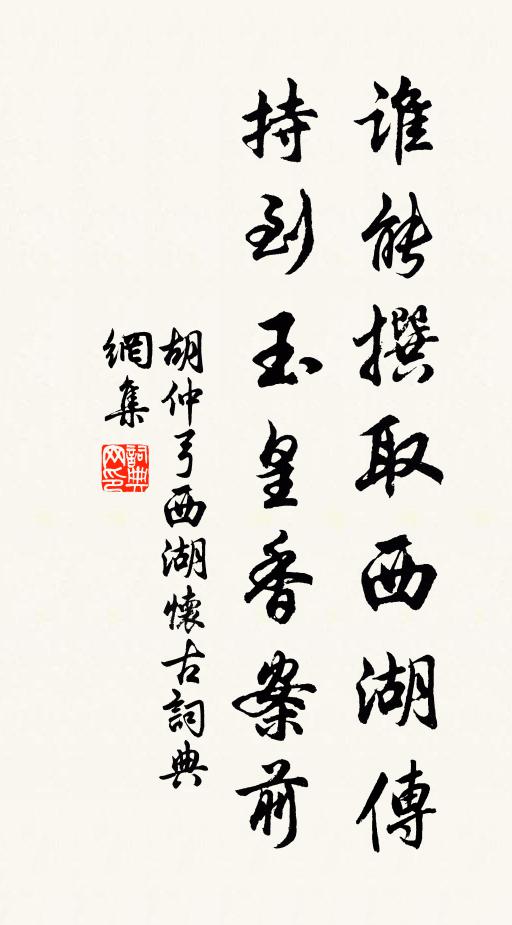 誰能撰取西湖傳
持到玉皇香案前
胡仲弓西湖懷古詞典
網集
詞典
网印